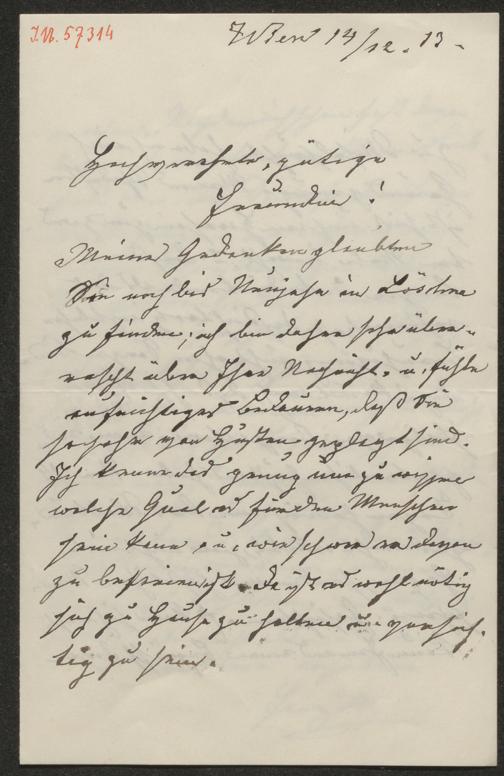 I.N. 57314
Wien 14/12. 13.
Hochverehrte, gütige
Freundin!
Meine Gedanken glaubten
Sie noch bis Neujahr in
zu finden; ich bin daher sehr über-
rascht über Ihre Nachricht u. fühle
aufrichtiges Bedauern, daß Sie
so sehr von Husten geplagt sind.
Ich kenne das genug um zu wissen
welche Qual es für den Menschen
sein kann u. wie schwer er davon
zu befreien ist. Da ist es wohl nötig
sich zu Hause zu halten u. vorsich-
tig zu sein.